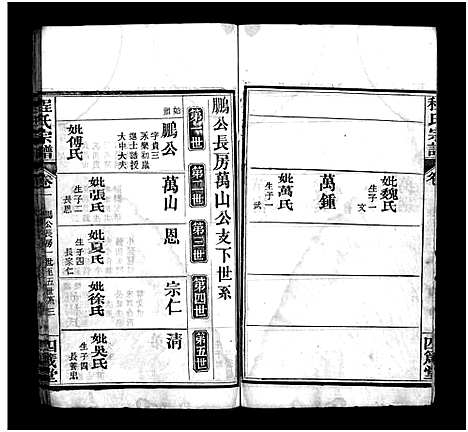 程氏宗譜
卷
四箴堂
妣魏氏
生子一
文
萬鍾
妣萬氏
生子一
武
鵬公長房萬山公支下世系
第一世
第二世
第三世
第四世
第五世
始祖
鵬公
字貴三
系樂初
進士誥授
大中大夫
妣傅氏
萬山
妣張氏
生子二
長恩
恩
妣夏氏
生子四
長宗仁
宗仁
妣徐氏
清
妣吳氏
生子四
長善忠
程氏宗譜
卷一
鵬公長房一世至五世系
四箴堂